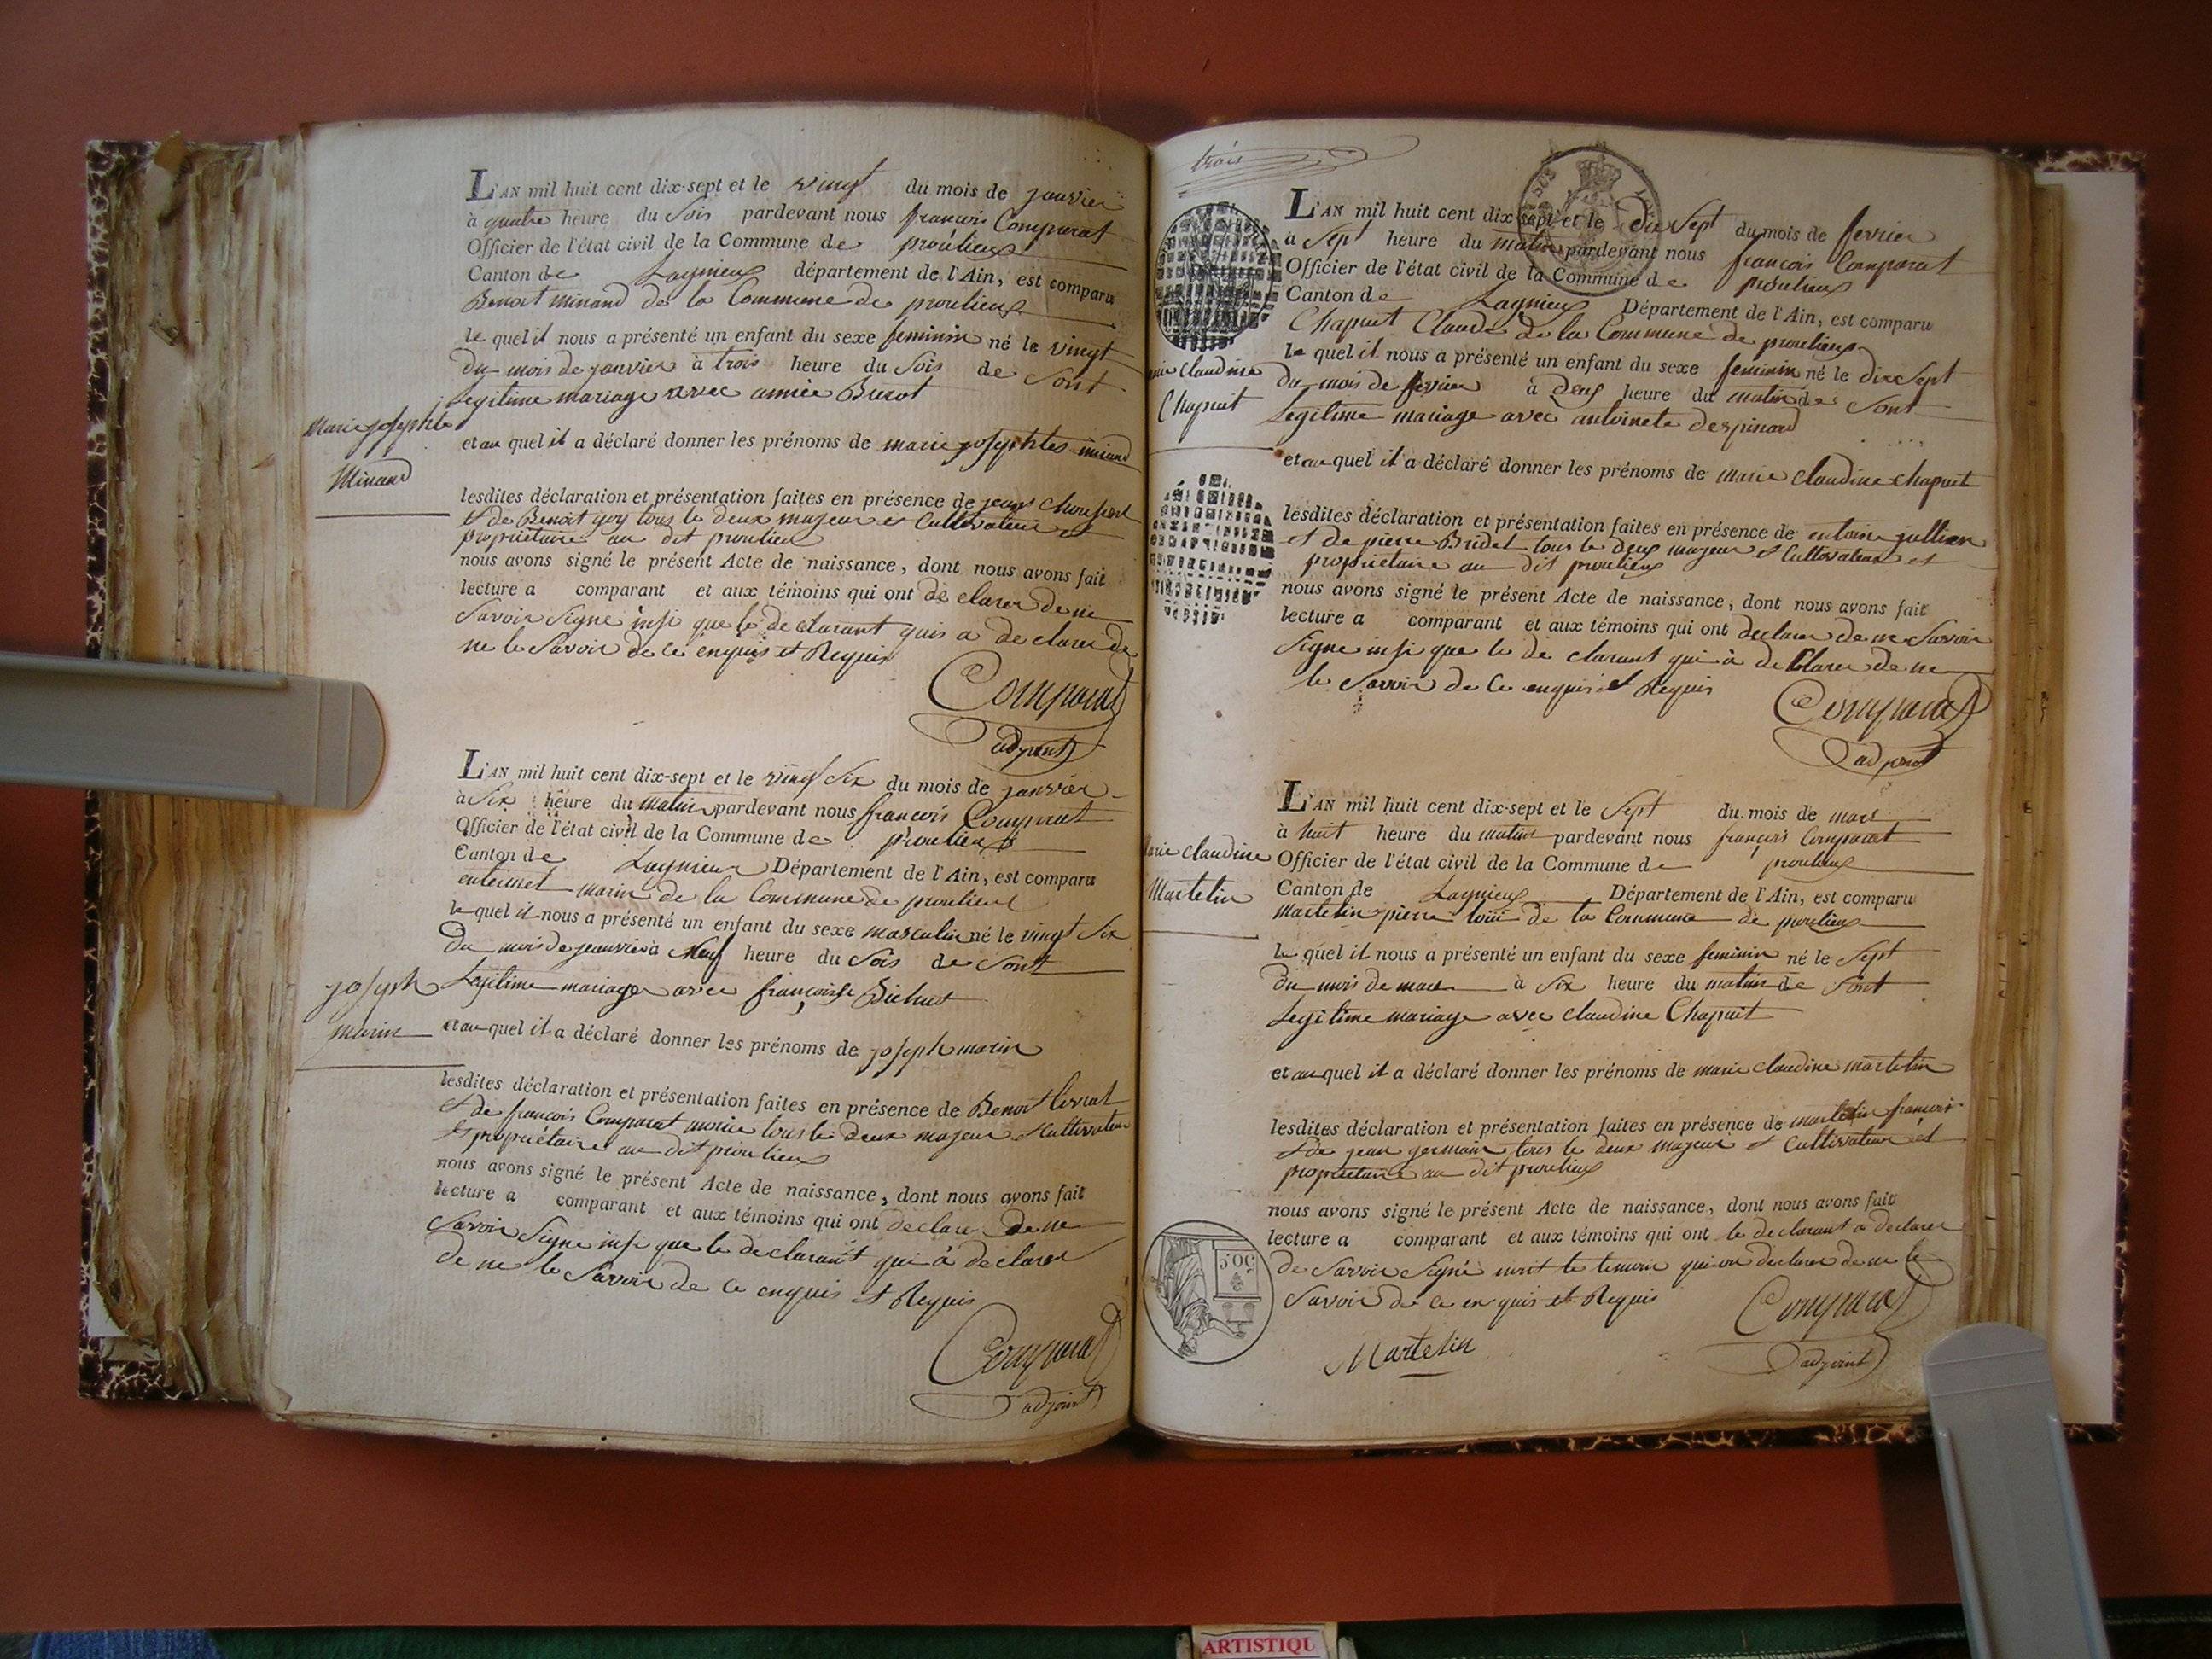 L'AN mil huit cent dix-sept et le vingt du mois de janvier
à quatre heure du Soir pardevant nous françois Comparat
Officier de l'état civil de la Commune de proulieux
Canton de Lagnieux département de l'Ain, est comparu
Benoit minand de la Commune de proulieux
le quel il nous a présenté un enfant du sexe feminin né le vingt
du mois de janvier à trois heure du Soir de Sont
Legitime mariage avec
Marie josephte
et au quel il a déclaré donner les prénoms de marie josephtes minand
Minand
lesdites déclaration et présentation faites en présence de jean
et de Benoit goy tous le deux majeur et Cultivateur et
propriétaire au dit proulieux
nous avons signé le présent Acte de naissance, dont nous avons fait
lecture a comparant et aux témoins qui ont de clarer de ne
Savoir Signe insi que le de clarant quis a de clarer de
ne le Savoir de ce enquis et Requis
Comparat
adjoint
L'AN mil huit cent dix-sept et le vingt Six du mois de janvier
à Six heure du matin pardevant nous françois Comparat
Officier de l'état civil de la Commune de proulieux
Canton de Lagnieux Département de l'Ain, est comparu
marin de la Commune de proulieux
le quel il nous a présenté un enfant du sexe masculin né le vingt Six
du mois de jeanvier à Neuf heure du Soir de Sont
joseph
Legitime mariage avec françoise
marin
et au quel il a déclaré donner les prénoms de joseph marin
lesdites déclaration et présentation faites en présence de Benoit
et de françois Comparat tous le deux majeur et Cultivateur
et propriétaire au dit proulieux
nous avons signé le présent Acte de naissance, dont nous avons fait
lecture a comparant et aux témoins qui ont declarer de ne
Savoir Signe insi que le declarant qui à declarer
de ne le Savoir de ce enquis et Requis
Comparat
adjoint
trois
L'AN mil huit cent dix-sept et le dix Sept du mois de fevrier
à Sept heure du matin pardevant nous françois Comparat
Officier de l'état civil de la Commune de proulieux
Canton de Lagnieux Département de l'Ain, est comparu
Chapuit Claude de la Commune de proulieux
le quel il nous a présenté un enfant du sexe feminin né le dix Sept
Claudine
du mois de fevrier à deux heure du matin de Sont
Chapuit
Legitime mariage avec antoinete despinard
et au quel il a déclaré donner les prénoms de marie claudine chapuit
lesdites déclaration et présentation faites en présence de entoine jullien
et de pierre Bridet tous le deux majeur et Cultivateur et
propriétaire au dit proulieux
nous avons signé le présent Acte de naissance, dont nous avons fait
lecture a comparant et aux témoins qui ont declarer de ne Savoir
Signe insi que le de clarant qui à de Clarer de ne
le Savoir de Ce enquis et Requis
Comparat
adjoint
L'AN mil huit cent dix-sept et le Sept du mois de mars
à huit heure du matin pardevant nous françois Comparat
claudine
Officier de l'état civil de la Commune de proulieux
Martelin
Canton de Lagnieux Département de l'Ain, est comparu
Martelin pierre de la Commune de proulieux
le quel il nous a présenté un enfant du sexe feminin né le Sept
du mois de mars à Six heure du matin de Sont
Legitime mariage avec claudine Chapuit
et au quel il a déclaré donner les prénoms de marie claudine martelin
lesdites déclaration et présentation faites en présence de martelin françois
et de jean germain tous le deux majeur et Cultivateur et
propriétaire au dit proulieux
nous avons signé le présent Acte de naissance, dont nous avons fait
lecture a comparant et aux témoins qui ont le declarant a declarer
de Savoir Signé le temoin qui on declarer de ne le
Savoir de ce en quis et Requis
Comparat
Martelin
adjoint
50C
ARTISTIQU